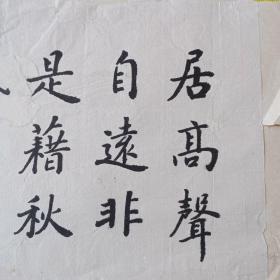 居高聲
自遠非
是藉秋